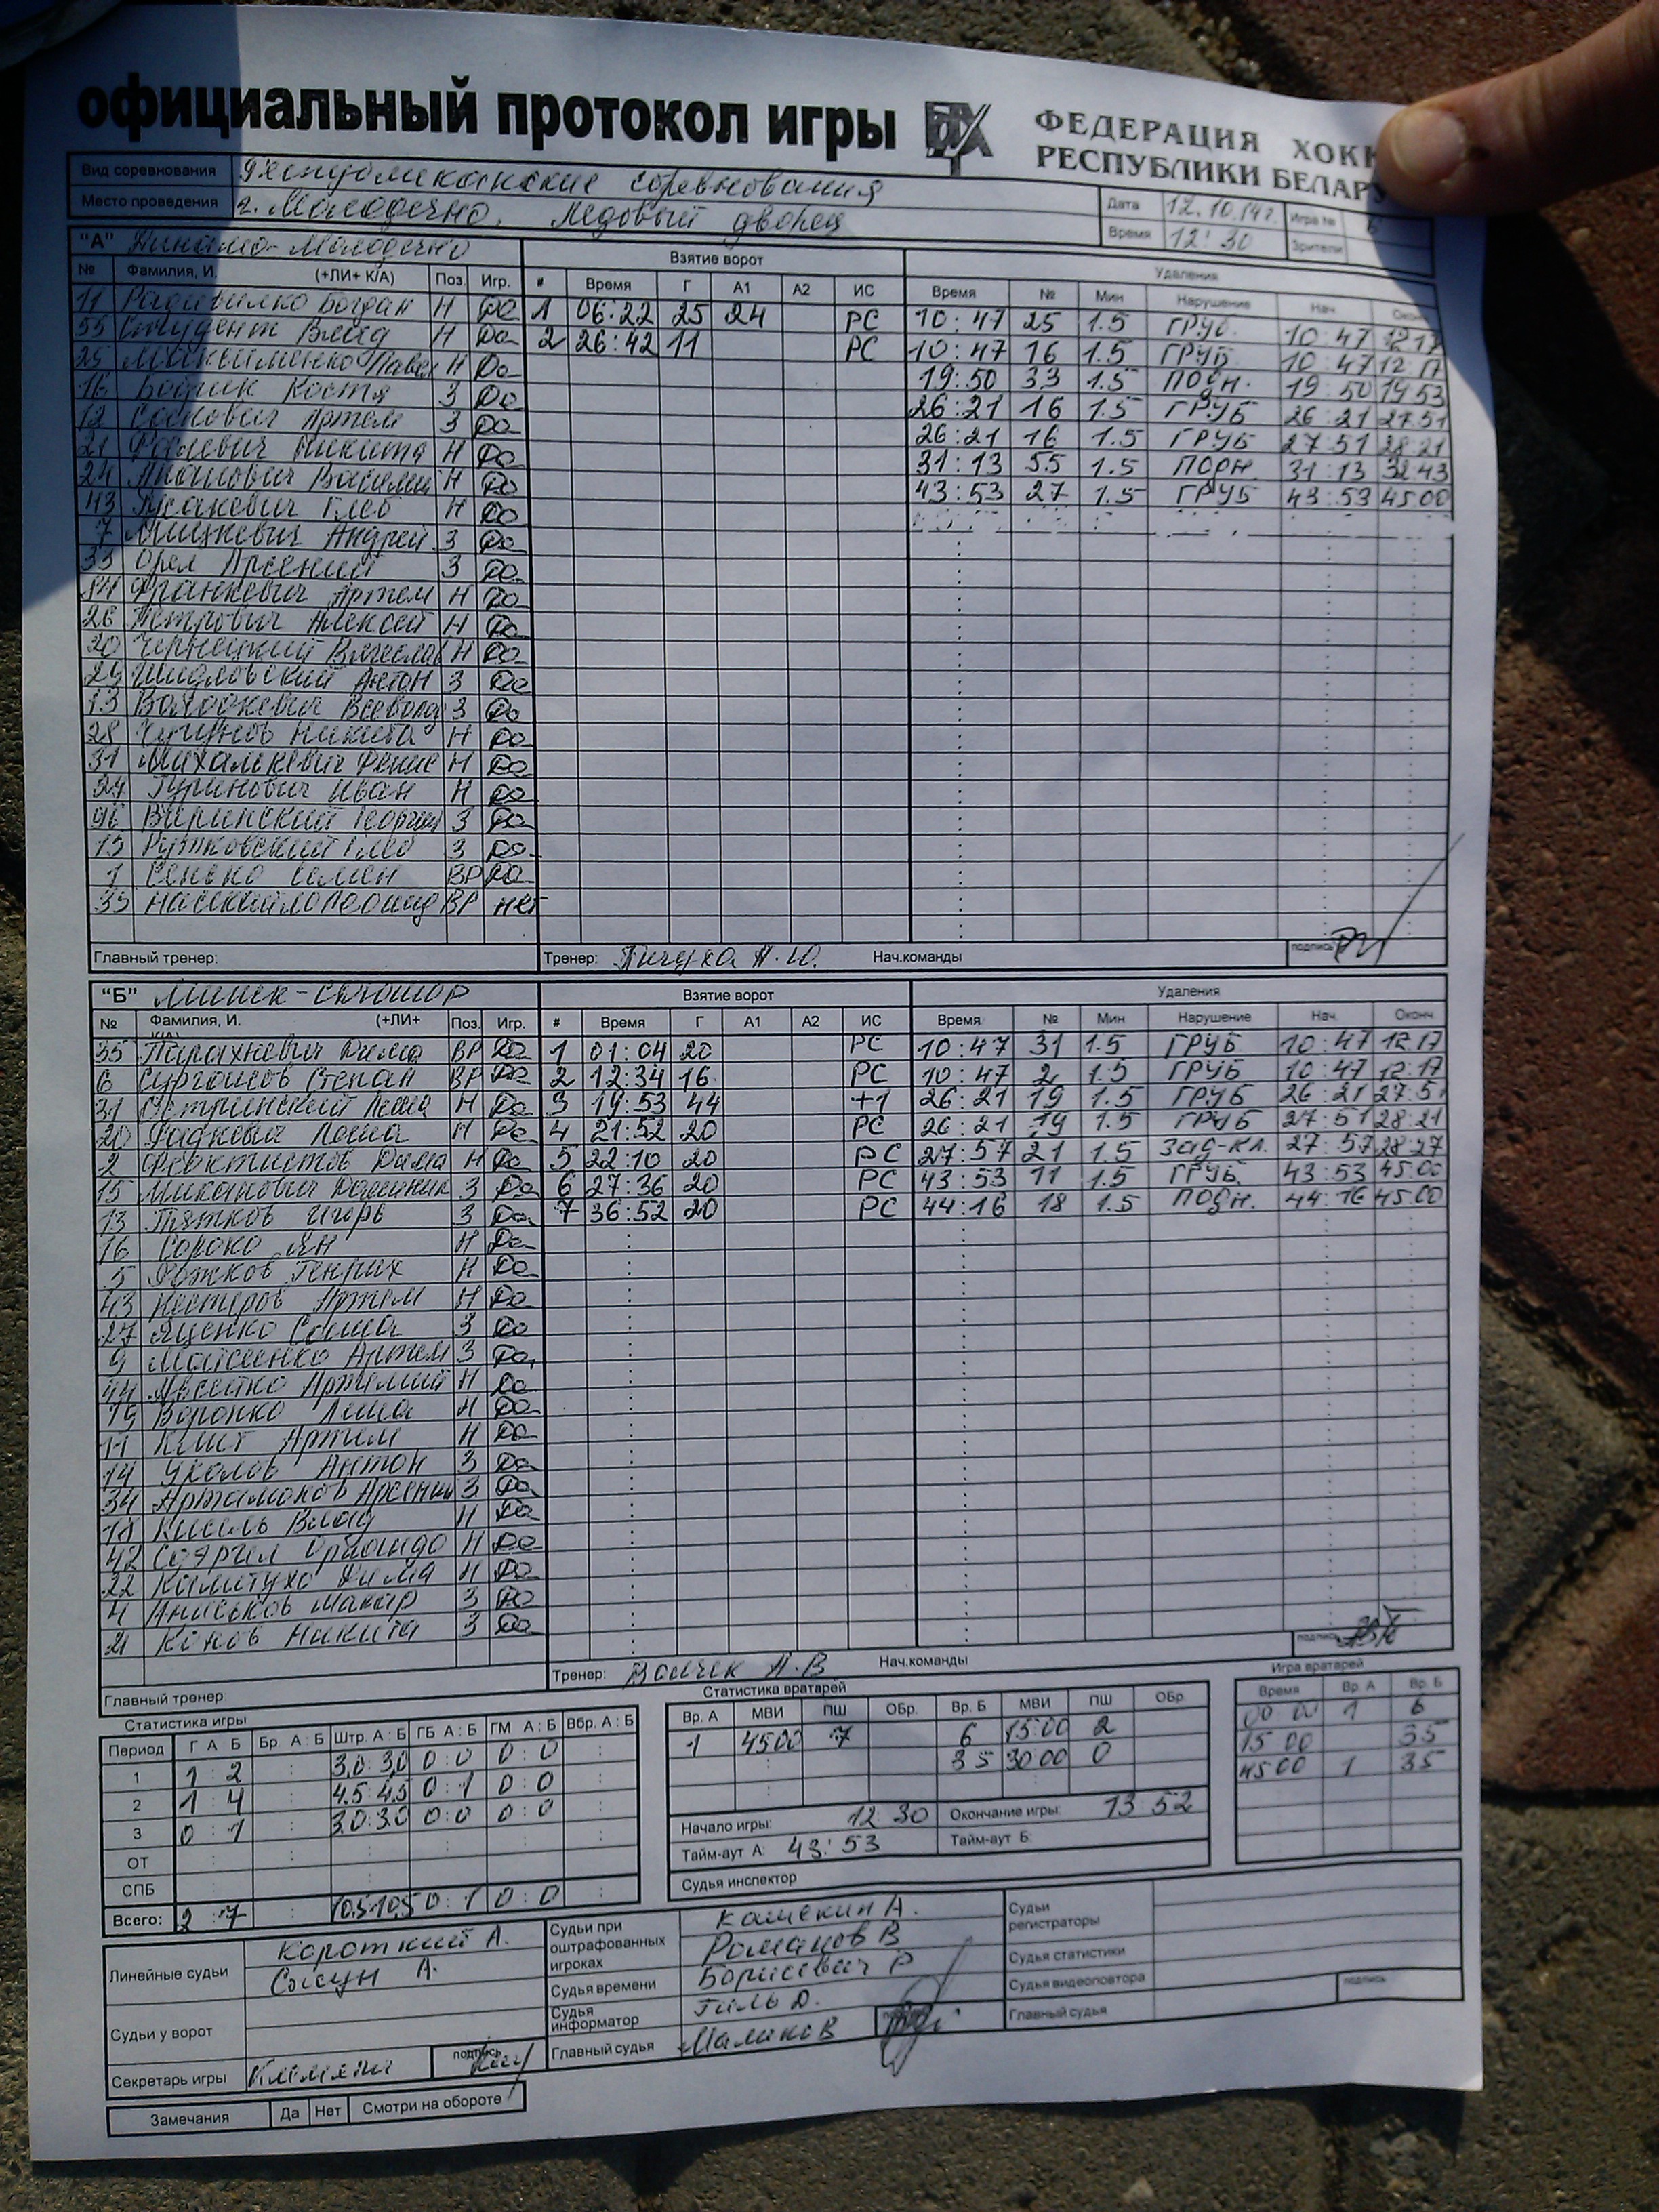 официальный протокол игры
ФЕДЕРАЦИЯ ХОКК
РЕСПУБЛИКИ БЕЛАРУ
Вид соревнования Республиканские соревнования
Место проведения г. Молодечно. Ледовый дворец
Дата 12.10.14г. Игра № 6
Время 12:30 Зрители
"А" Динамо-Молодечно Взятие ворот Удаления
№ Фамилия, И. (+ЛИ+ К/А) Поз. Игр. # Время Г А1 А2 ИС Время № Мин Нарушение Нач. Оконч
11 Радивилко Богдан Н Да 1 06:22 25 24 РС 10:47 25 1.5 ГРУБ. 10:47 12 17
55 Студент Влад Н Да 2 26:42 11 РС 10:47 16 1.5 ГРУБ. 10:47 12 17
25 Максименко Павел Н Да 19:50 33 1.5 ПОДН. 19:50 19 53
16 Бобрик Костя З Да 26:21 16 1.5 ГРУБ 26:21 27 51
12 Соснович Артем З Да 26:21 16 1.5 ГРУБ 27:51 28 21
21 Никита Н Да 31:13 55 1.5 ПОДН 31:13 32 43
24 Василий Н Да 43:53 27 1.5 ГРУБ 43:53 45 00
43 Русакевич Глеб Н Да
7 Мицкевич Андрей З Да
33 Орел Арсений З Да
84 Франкевич Артем Н Да
26 Петрович Алексей Н Да
20 Чернецкий Вячеслав Н Да
29 Шидловский Антон З Да
13 Володкевич Всеволод З Да
28 Чугунов Никита Н Да
31 Михалкевич Денис Н Да
27 Гуринович Иван Н Да
96 Виринский Георгий З Да
15 Рутковский Глеб З Да
1 Сенько Семен ВР Да
35 Леонид ВР нет
Главный тренер: Тренер: Пичуха А.Ю. Нач.команды подпись
"Б" Минск-СДЮШОР Взятие ворот Удаления
№ Фамилия, И. (+ЛИ+ К/А) Поз. Игр. # Время Г А1 А2 ИС Время № Мин Нарушение Нач. Оконч
35 Парахневич Дима ВР Да 1 01:04 20 РС 10:47 31 1.5 ГРУБ 10:47 12 17
6 Степан ВР Да 2 12:34 16 РС 10:47 2 1.5 ГРУБ 10:47 12 17
31 Островский Леша Н Да 3 19:53 44 +1 26:21 19 1.5 ГРУБ 26:21 27:51
20 Радкевич Леша Н Да 4 21:52 20 РС 26:21 19 1.5 ГРУБ 27:51 28:21
2 Феоктистов Дима Н Да 5 22:10 20 РС 27:57 21 1.5 ЗАД-КЛ. 27:57 28:27
15 Миканович Доминик З Да 6 27:36 20 РС 43:53 11 1.5 ГРУБ. 43:53 45:00
13 Тятков Игорь З Да 7 36:52 20 РС 44:16 18 1.5 ПОДН. 44:16 45:00
16 Сороко Ян Н Да
5 Рожков Генрих Н Да
43 Нестеров Артем Н Да
27 Яценко Саша З Да
9 Моисеенко Артем З Да
44 Авсейко Артемий Н Да
19 Воронко Леша Н Да
11 Кшист Артем Н Да
14 Уколов Антон З Да
34 Артамонов Арсений З Да
18 Кисель Влад Н Да
42 Орландо Н Да
22 Калитухо Дима Н Да
4 Аниськов Макар З Да
21 Конов Никита З Да
подпись
Главный тренер Тренер: Волчек А.В. Нач.команды
Статистика игры
Период Г А Б Бр. А : Б Штр. А : Б ГБ А : Б ГМ А : Б Вбр. А : Б
1 1:2 : 3,0:3,0 0:0 0:0 :
2 1:4 : 4.5:4.5 0:1 0:0 :
3 0:1 : 3.0:3.0 0:0 0:0 :
ОТ
СПБ
Всего: 2:7 : 10.5:10.5 0:1 0:0 :
Статистика вратарей
Вр. А МВИ ПШ ОБр. Вр. Б МВИ ПШ ОБр.
1 45 00 7 6 15:00 2
35 30 00 0
Начало игры: 12 30 Окончание игры: 13 52
Тайм-аут А: 43:53 Тайм-аут Б:
Судья инспектор
Игра вратарей
Время Вр. А Вр. Б
00 00 1 6
15 00 35
45 00 1 35
Линейные судьи Короткий А.
Сосун А.
Судьи у ворот
Секретарь игры подпись
Судьи при оштрафованных игроках Камекин А.
Романов В
Судья времени Борисевич Р
Судья информатор Гиль Д.
Главный судья Маликов подпись
Судьи регистраторы
Судья статистики
Судья видеоповтора
Главный судья подпись
Замечания Да Нет Смотри на обороте